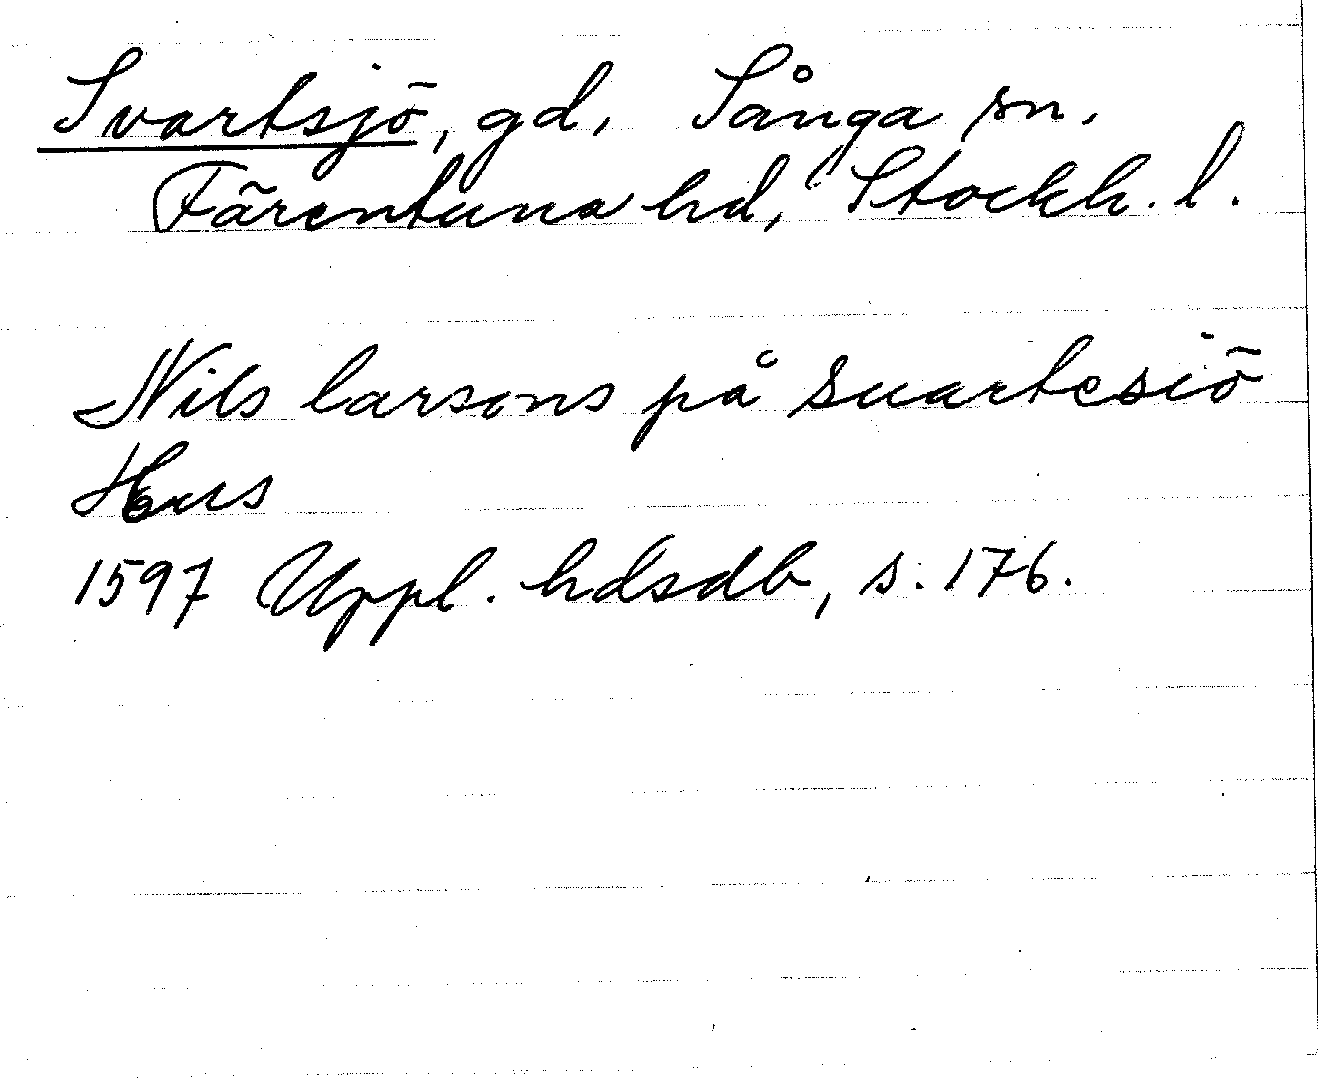 Svartsjö, gd, Sånga sn.
Färentuna hd, Stockh. l.
Nils larsons på Suartesiö
Hus
1597 Uppl. hdsdb, s. 176.